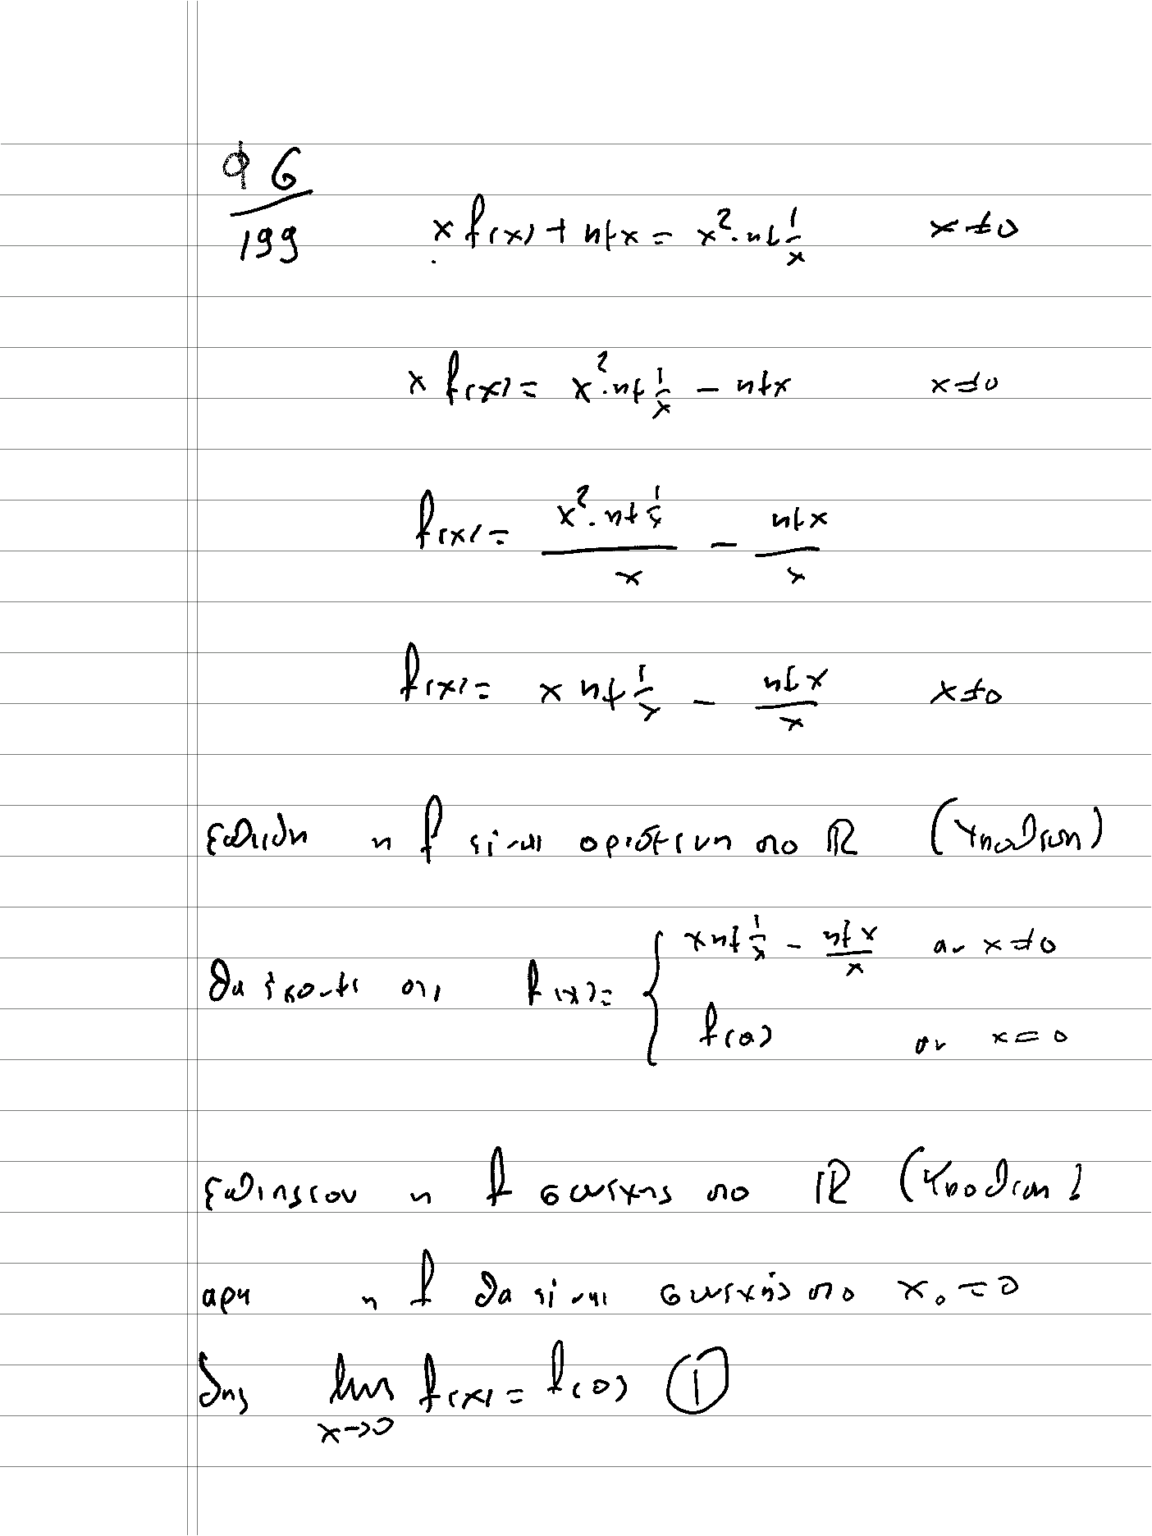 φ 6
199
x f(x) + ημx = x² · ημ 1/x   x ≠ 0
x f(x) = x² · ημ 1/x − ημx   x ≠ 0
f(x) = (x² · ημ 1/x)/x − ημx/x
f(x) = x ημ 1/x − ημx/x   x ≠ 0
Επειδη η f ειναι ορισμενη στο ℝ (Υποθεση)
θα εχουμε οτι f(x) = { xημ 1/x − ημx/x αν x ≠ 0
f(0) αν x = 0
Επιπλεον η f συνεχης στο ℝ (Υποθεση)
αρα η f θα ειναι συνεχής στο x₀ = 0
δης lim x→0 f(x) = f(0) ①